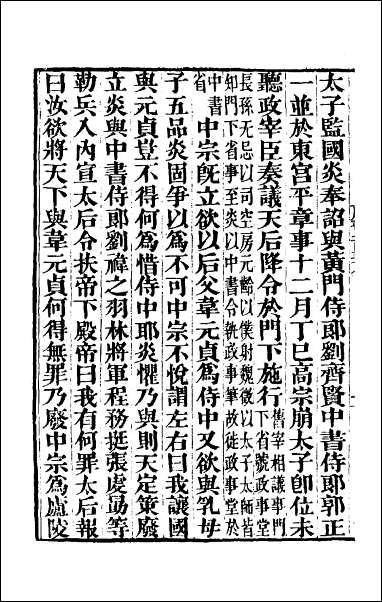 太子監國炎奉詔與黃門侍郎劉齊賢中書侍郎郭正
一並於東宮平章事十二月丁巳高宗崩太子卽位未
聽政宰臣奏議天后降令於門下施行
舊宰相議事門
下省號政事堂
長孫无忌以司空房元齡以僕射魏徵以太子太師皆
知門下省事至炎以中書令執政事筆故徙政事堂於
中書
省
中宗旣立欲以后父韋元貞爲侍中又欲與乳母
子五品炎固爭以爲不可中宗不悅謂左右曰我讓國
與元貞豈不得何爲惜侍中耶炎懼乃與則天定策廢
立炎與中書侍郎劉禕之羽林將軍程務挺張虔勖等
勒兵入內宣太后令扶帝下殿帝曰我有何罪太后報
曰汝欲將天下與韋元貞何得無罪乃廢中宗爲廬陵